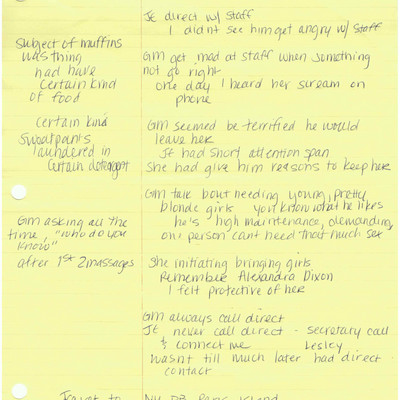 JE direct w/ staff
I didnt see him get angry w/ staff
subject of muffins
was thing
had have
certain kind
of food
GM get mad at staff when something
not go right
one day I heard her scream on
phone
certain kind
sweatpants
laundered in
certain detergent
GM seemed be terrified he would
leave her
JE had short attention span
she had give him reasons to keep her
GM talk bout needing young, pretty
blonde girls you know what he likes
he's high maintenance, demanding,
one person cant need that much sex
GM asking all the
time, "who do you
know"
after 1st 2 massages
she initiating bringing girls
Remember Alexandra Dixon
I felt protective of her
GM always call direct
JE never call direct - secretary call
& connect me Lesley
wasnt till much later had direct
contact
Travel to
NY PB Island